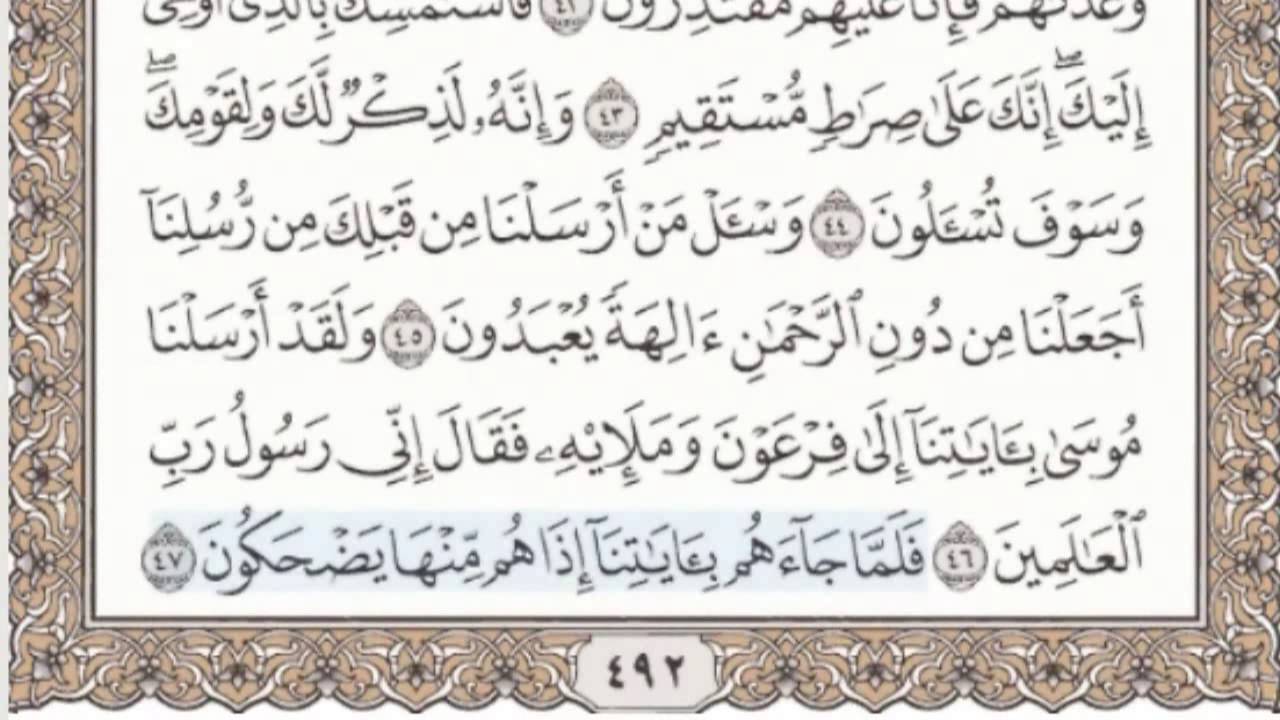 وَعَدْنَٰهُمْ فَإِنَّا عَلَيْهِم مُّقْتَدِرُونَ ٤٢ فَٱسْتَمْسِكْ بِٱلَّذِىٓ أُوحِىَ
إِلَيْكَ ۖ إِنَّكَ عَلَىٰ صِرَٰطٍ مُّسْتَقِيمٍ ٤٣ وَإِنَّهُۥ لَذِكْرٌ لَّكَ وَلِقَوْمِكَ ۖ
وَسَوْفَ تُسْـَٔلُونَ ٤٤ وَسْـَٔلْ مَنْ أَرْسَلْنَا مِن قَبْلِكَ مِن رُّسُلِنَآ
أَجَعَلْنَا مِن دُونِ ٱلرَّحْمَٰنِ ءَالِهَةً يُعْبَدُونَ ٤٥ وَلَقَدْ أَرْسَلْنَا
مُوسَىٰ بِـَٔايَٰتِنَآ إِلَىٰ فِرْعَوْنَ وَمَلَإِي۟هِۦ فَقَالَ إِنِّى رَسُولُ رَبِّ
ٱلْعَٰلَمِينَ ٤٦ فَلَمَّا جَآءَهُم بِـَٔايَٰتِنَآ إِذَا هُم مِّنْهَا يَضْحَكُونَ ٤٧
٤٩٢